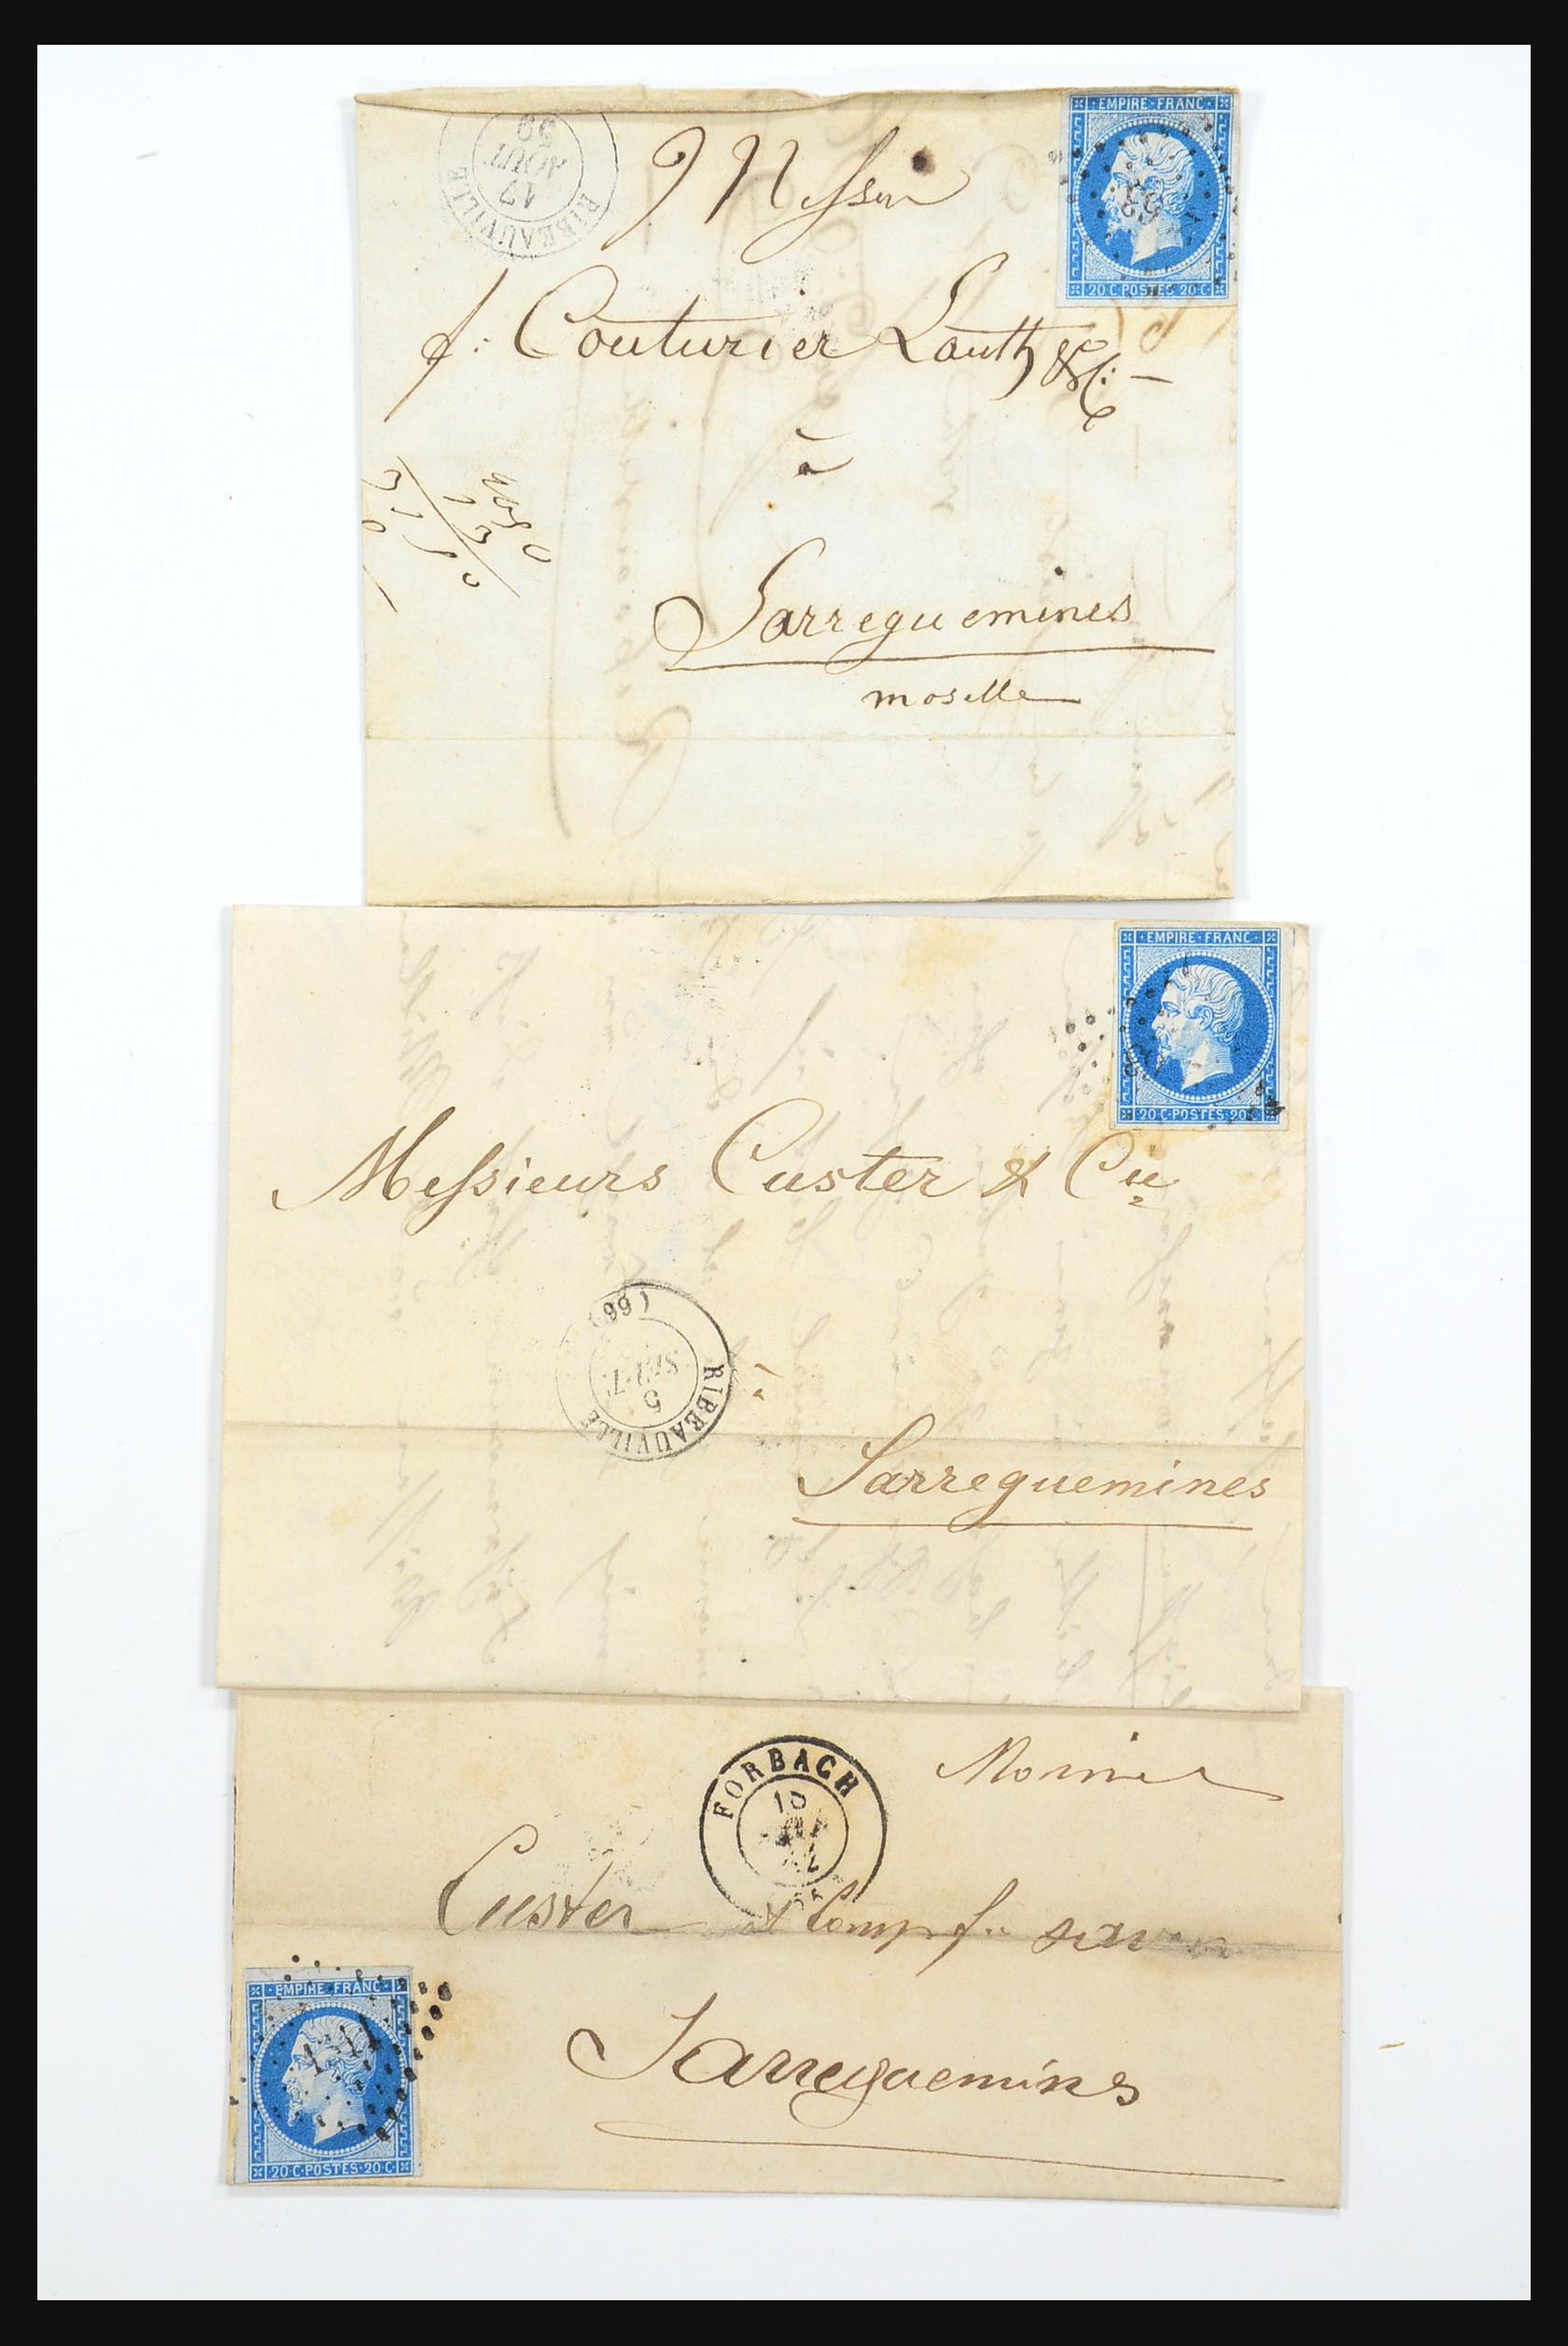 EMPIRE · FRANC ·
20 C · POSTES · 20 C ·
RIBEAUVILLE
17
AOUT
59
Messieurs
f: Couturier Lauth & C:
à
Sarreguemines
moselle
EMPIRE · FRANC ·
20 C · POSTES · 20 C
Messieurs Custer & Cie
RIBEAUVILLE
5
SEPT
(66)
à
Sarreguemines
FORBACH
Custer et Comp f.
EMPIRE · FRANC ·
20 C · POSTES · 20 C ·
Sarreguemines